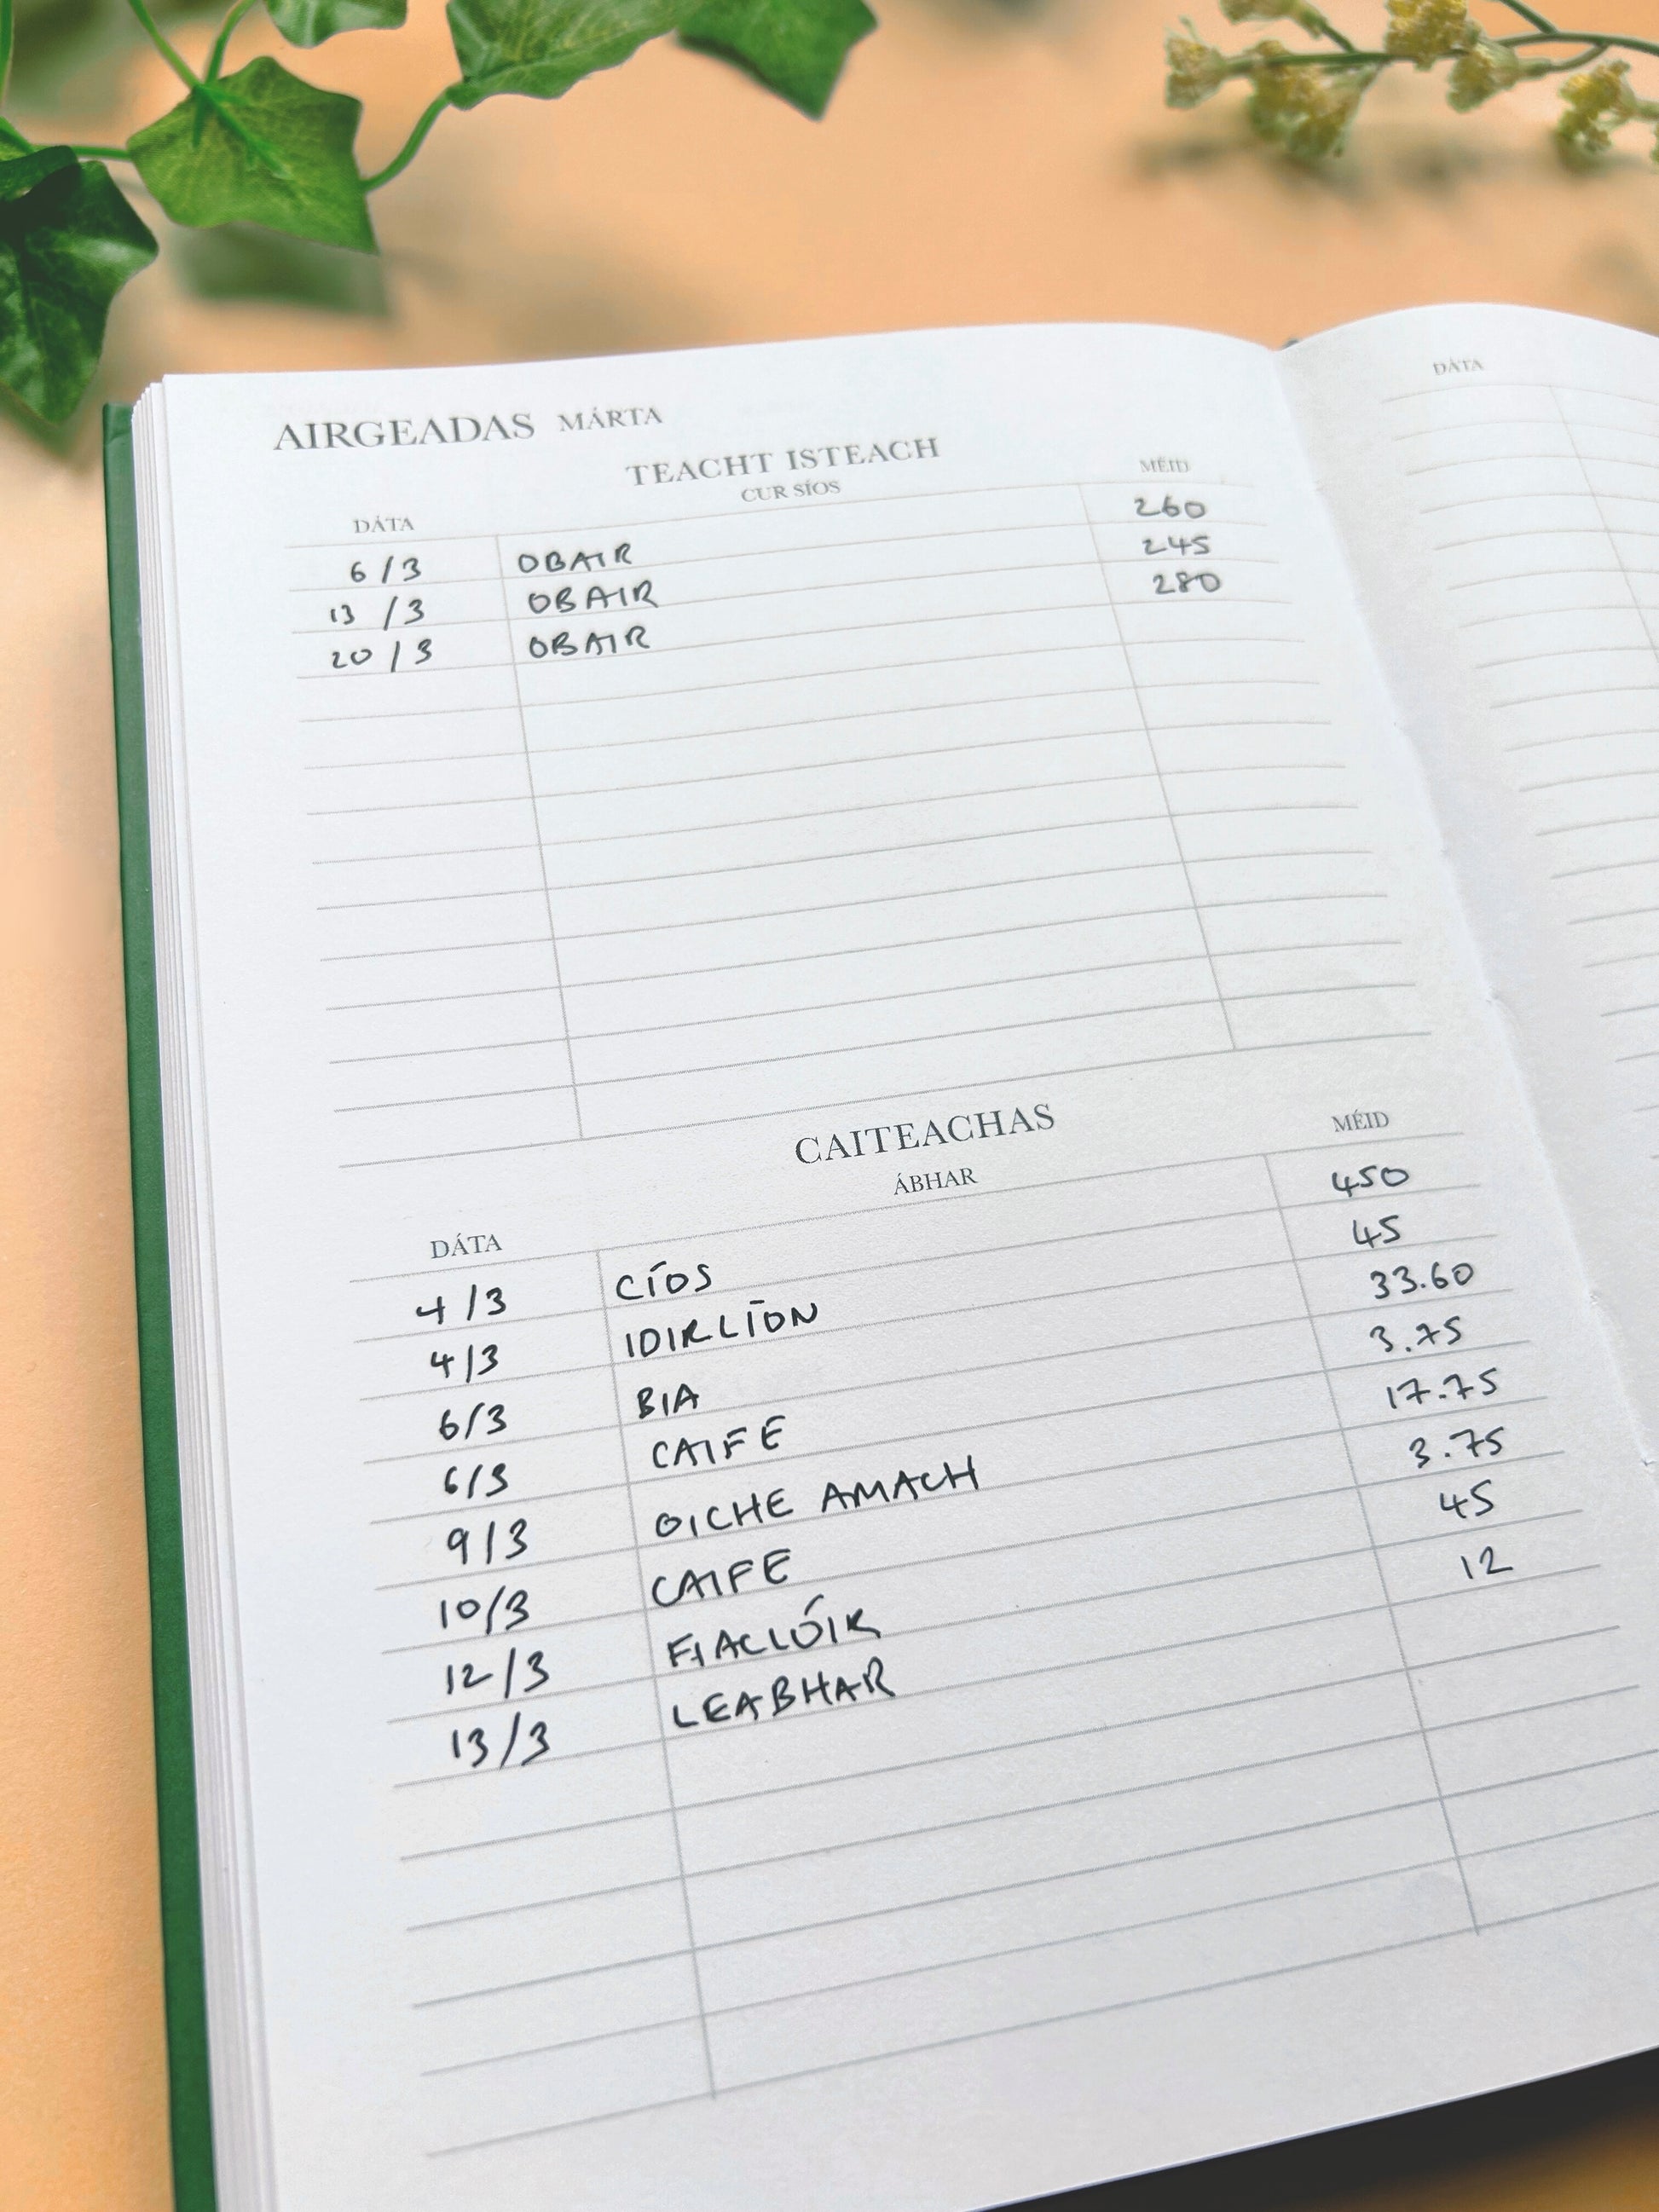 AIRGEADAS MÁRTA
TEACHT ISTEACH
DÁTA CUR SÍOS MÉID
6/3 OBAIR 260
13/3 OBAIR 245
20/3 OBAIR 280
CAITEACHAS
DÁTA ÁBHAR MÉID
4/3 CÍOS 450
4/3 IDIRLÍON 45
6/3 BIA 33.60
6/3 CAIFÉ 3.75
9/3 OICHE AMACH 17.75
10/3 CAIFE 3.75
12/3 FIACLÓIR 45
13/3 LEABHAR 12
DÁTA